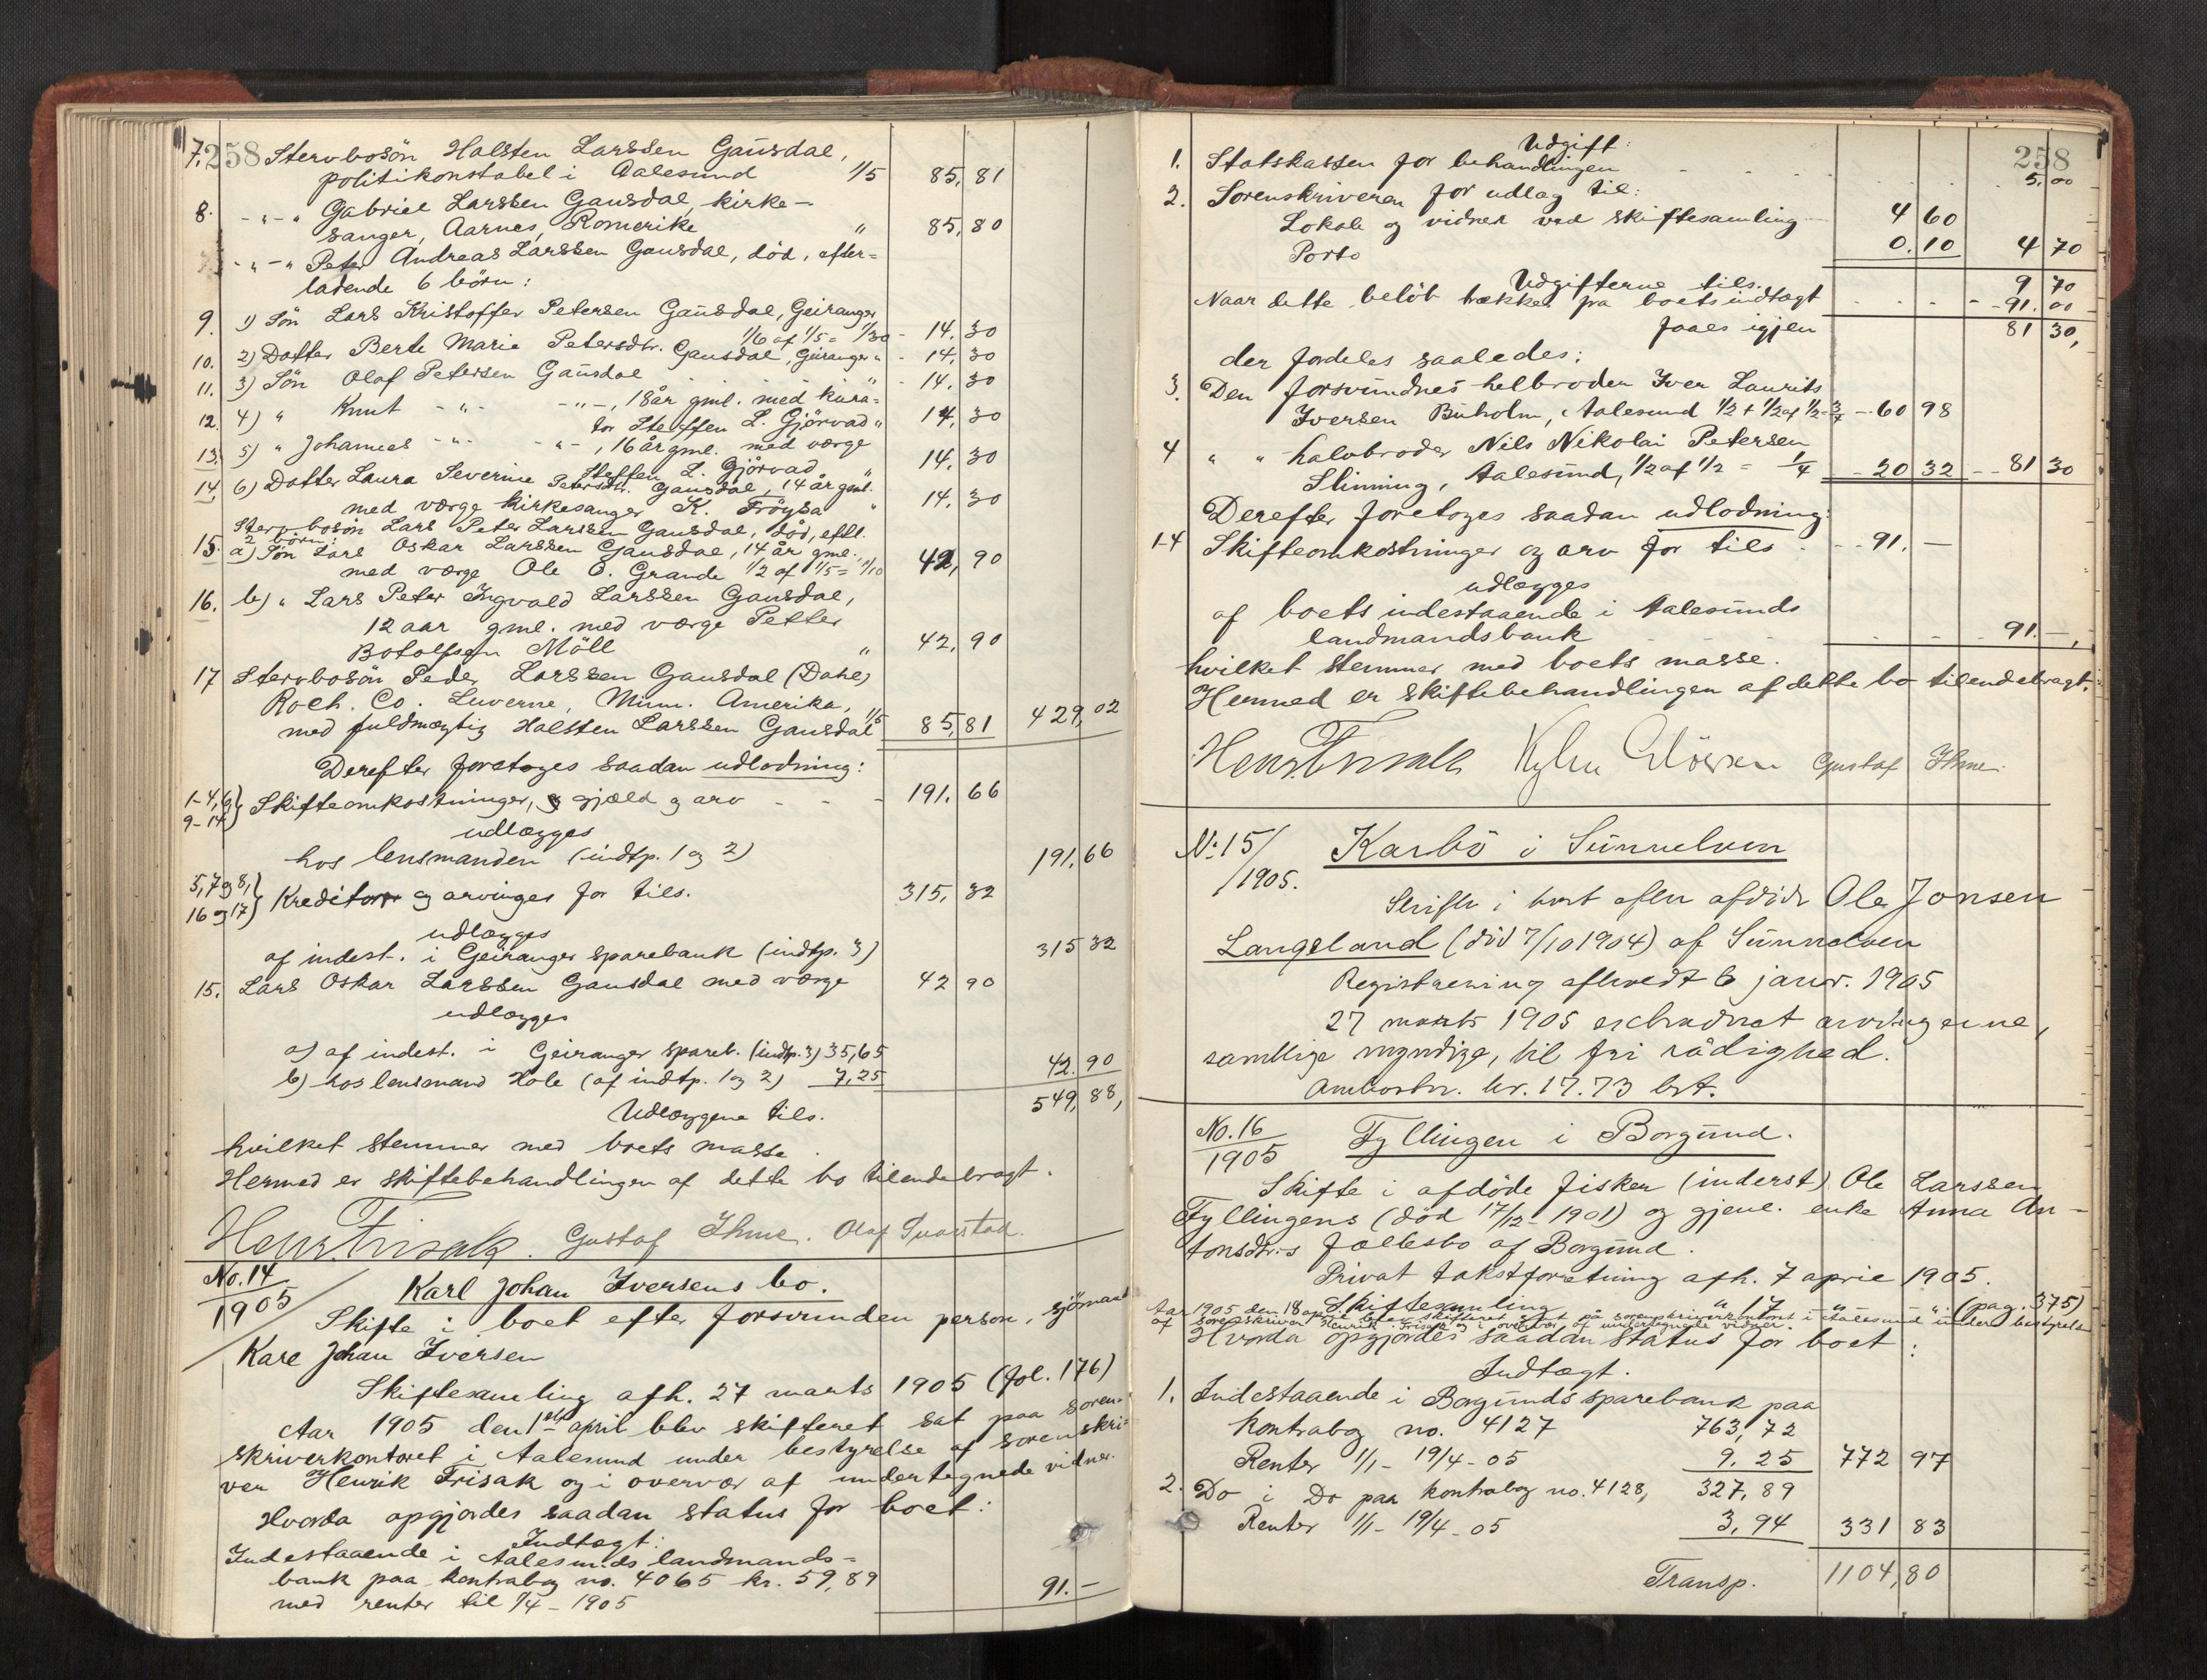 7. 258 Stervbosön Halsten Larssen Gausdal,
politikonstabel i Aalesund 1/5 85,81
8. -"-" Gabriel Larssen Gausdal, kirke-
sanger, Aarnes, Romerike " 85,80
-"-" Peter Andreas Larssen Gausdal, död, efter=
ladende 6 börn:
9. 1) Sön Lars Kristoffer Petersen Gausdal, Geiranger
1/6 af 1/5 = 1/30 - 14,30
10. 2) Datter Berte Marie Petersdtr. Gausdal, Geiranger " - 14,30
11. 3) Sön Olaf Petersen Gausdal " - 14,30
12. 4) " Knut -"- -"-, 18 år gml. med kura=
tor Steffen L. Gjörvad " 14,30
13. 5) " Johannes -"- -"-, 16 år gml. med værge
Steffen L. Gjörvad " 14,30
14. 6) Datter Laura Severine Petersdtr. Gausdal, 14 år gml.
med værge kirkesanger K. Fröysa " 14,30
Stervbosön Lars Peter Larssen Gausdal, död, eftl.
2 börn:
15. a) Sön Lars Oskar Larssen Gausdal, 14 år gml.
med værge Ole E. Grande 1/2 af 1/5 = 1/10 42,90
16. b) " Lars Peter Ingvald Larssen Gausdal,
12 aar gml. med værge Petter
Botolfsen Möll " 42,90
17 Stervbosön Peder Larssen Gausdal (Dahl)
Roch. Co. Luverne, Minn. Amerika,
med fuldmægtig Halsten Larssen Gausdal 1/5 85,81 429,02
Derefter foretoges saadan udlodning:
1-4, 6, 9-14 } Skifteomkostninger, gjæld og arv - - - 191.66
udlægges
hos lensmanden (indtp. 1 og 2) 191,66
5, 7 og 8, 16 og 17 } Kreditor og arvinger for tils. 315,32
udlægges
af indest. i Geiranger sparebank (indtp. 3) 315 32
15. Lars Oskar Larssen Gausdal med værge 42 90
udlægges
a) af indest. i Geiranger spareb. (indtp. 3) 35,65
b) hos lensmand Hole (af indtp. 1 og 2) 7,25 42.90
Udlæggene tils. 549,88,
hvilket stemmer med boets masse.
Hermed er skiftebehandlingen af dette bo tilendebragt.
Henr Frisak. Gustaf Ihme.
No. 14
1905
Karl Johan Iversens bo.
Skifte i boet efter forsvunden person, sjömand
Karl Johan Iversen
Skiftesamling afh. 27 marts 1905 (fol. 176)
Aar 1905 den 1ste april blev skifteret sat paa soren-
skriverkontoret i Aalesund under bestyrelse af sorenskri=
ver Henrik Frisak og i overvær af undertegnede vidner.
Hvorda opgjordes saadan status for boet:
Indtægt:
Indestaaende i Aalesunds landmands=
bank paa kontrabog no. 4065 kr. 59,89
med renter til 1/4 - 1905 91.-
258
Udgift:
1. Statskassen for behandlingen 5,00
2. Sorenskriveren for udlag til:
Lokale og vidner ved skiftesamling 4 60
Porto 0.10 4 70
Udgifterne tils. 9 70
Naar dette belöb trækkes fra boets indtægt - 91.00
faaes igjen 81 30,
der fordeles saaledes:
3. Den forsvundnes helbroder Iver Laurits
Iversen Buholm, Aalesund 1/2 + 1/2 af 1/2 = 3/4 - 60 98
4 " " halvbroder Nils Nikolai Petersen
Slinning, Aalesund, 1/2 af 1/2 = 1/4 - 20 32 - 81 30
Derefter foretoges saadan udlodning:
1-4 Skifteomkostninger og arv for tils - - 91. -
udlægges
af boets indestaaende i Aalesunds
landmandsbank 91.-,
hvilket stemmer med boets masse.
Hermed er skiftebehandlingen af dette bo tilendebragt.
Henr Frisak Gustaf Ihme.
No: 15/
/1905.
Karlbö i Sunnelven
Skifte i boet efter afdöde Ole Jonsen
Langeland (död 7/10 1904) af Sunnelven
Registrering afholdt 6 januar. 1905
27 marts 1905 extraderet arvingerne,
samtlige myndige, til fri rådighed.
kr. 17.73 bet.
No. 16
1905
Fyllingen i Borgund.
Skifte i afdöde fisker (inderst) Ole Larssen
Fyllingens (död 17/12-1901) og gjenl. enke Anna An-
tonsdtr-s fællesbo af Borgund.
Privat takstforretning afh. 7 april 1905.
Skiftesamling " 17 " " (pag. 375)
Aar 1905 den 18 april blev skifteret sat på sorenskriverkontoret i Aalesund under bestyrelse
af sorenskriver Henrik Frisak og i overvær af undertegnede vidner.
Hvorda opgjordes saadan status for boet:
Indtægt.
1. Indestaaende i Borgunds sparebank paa
kontrabog no. 4127 763,72
Renter 1/1 - 19/4 - 05 9.25 772 97
2. Do i Do paa kontrabog no. 4128, 327,89
Renter 1/1 - 19/4 - 05 3,94 331 83
Transp. 1104,80